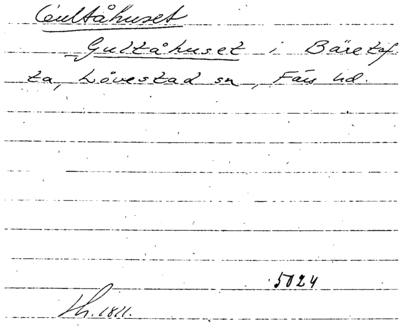 Gultåhuset
Gultåhuset i Bäretof
ta, Lövestad sn, Färs hd.
5024
Hh. 1811.